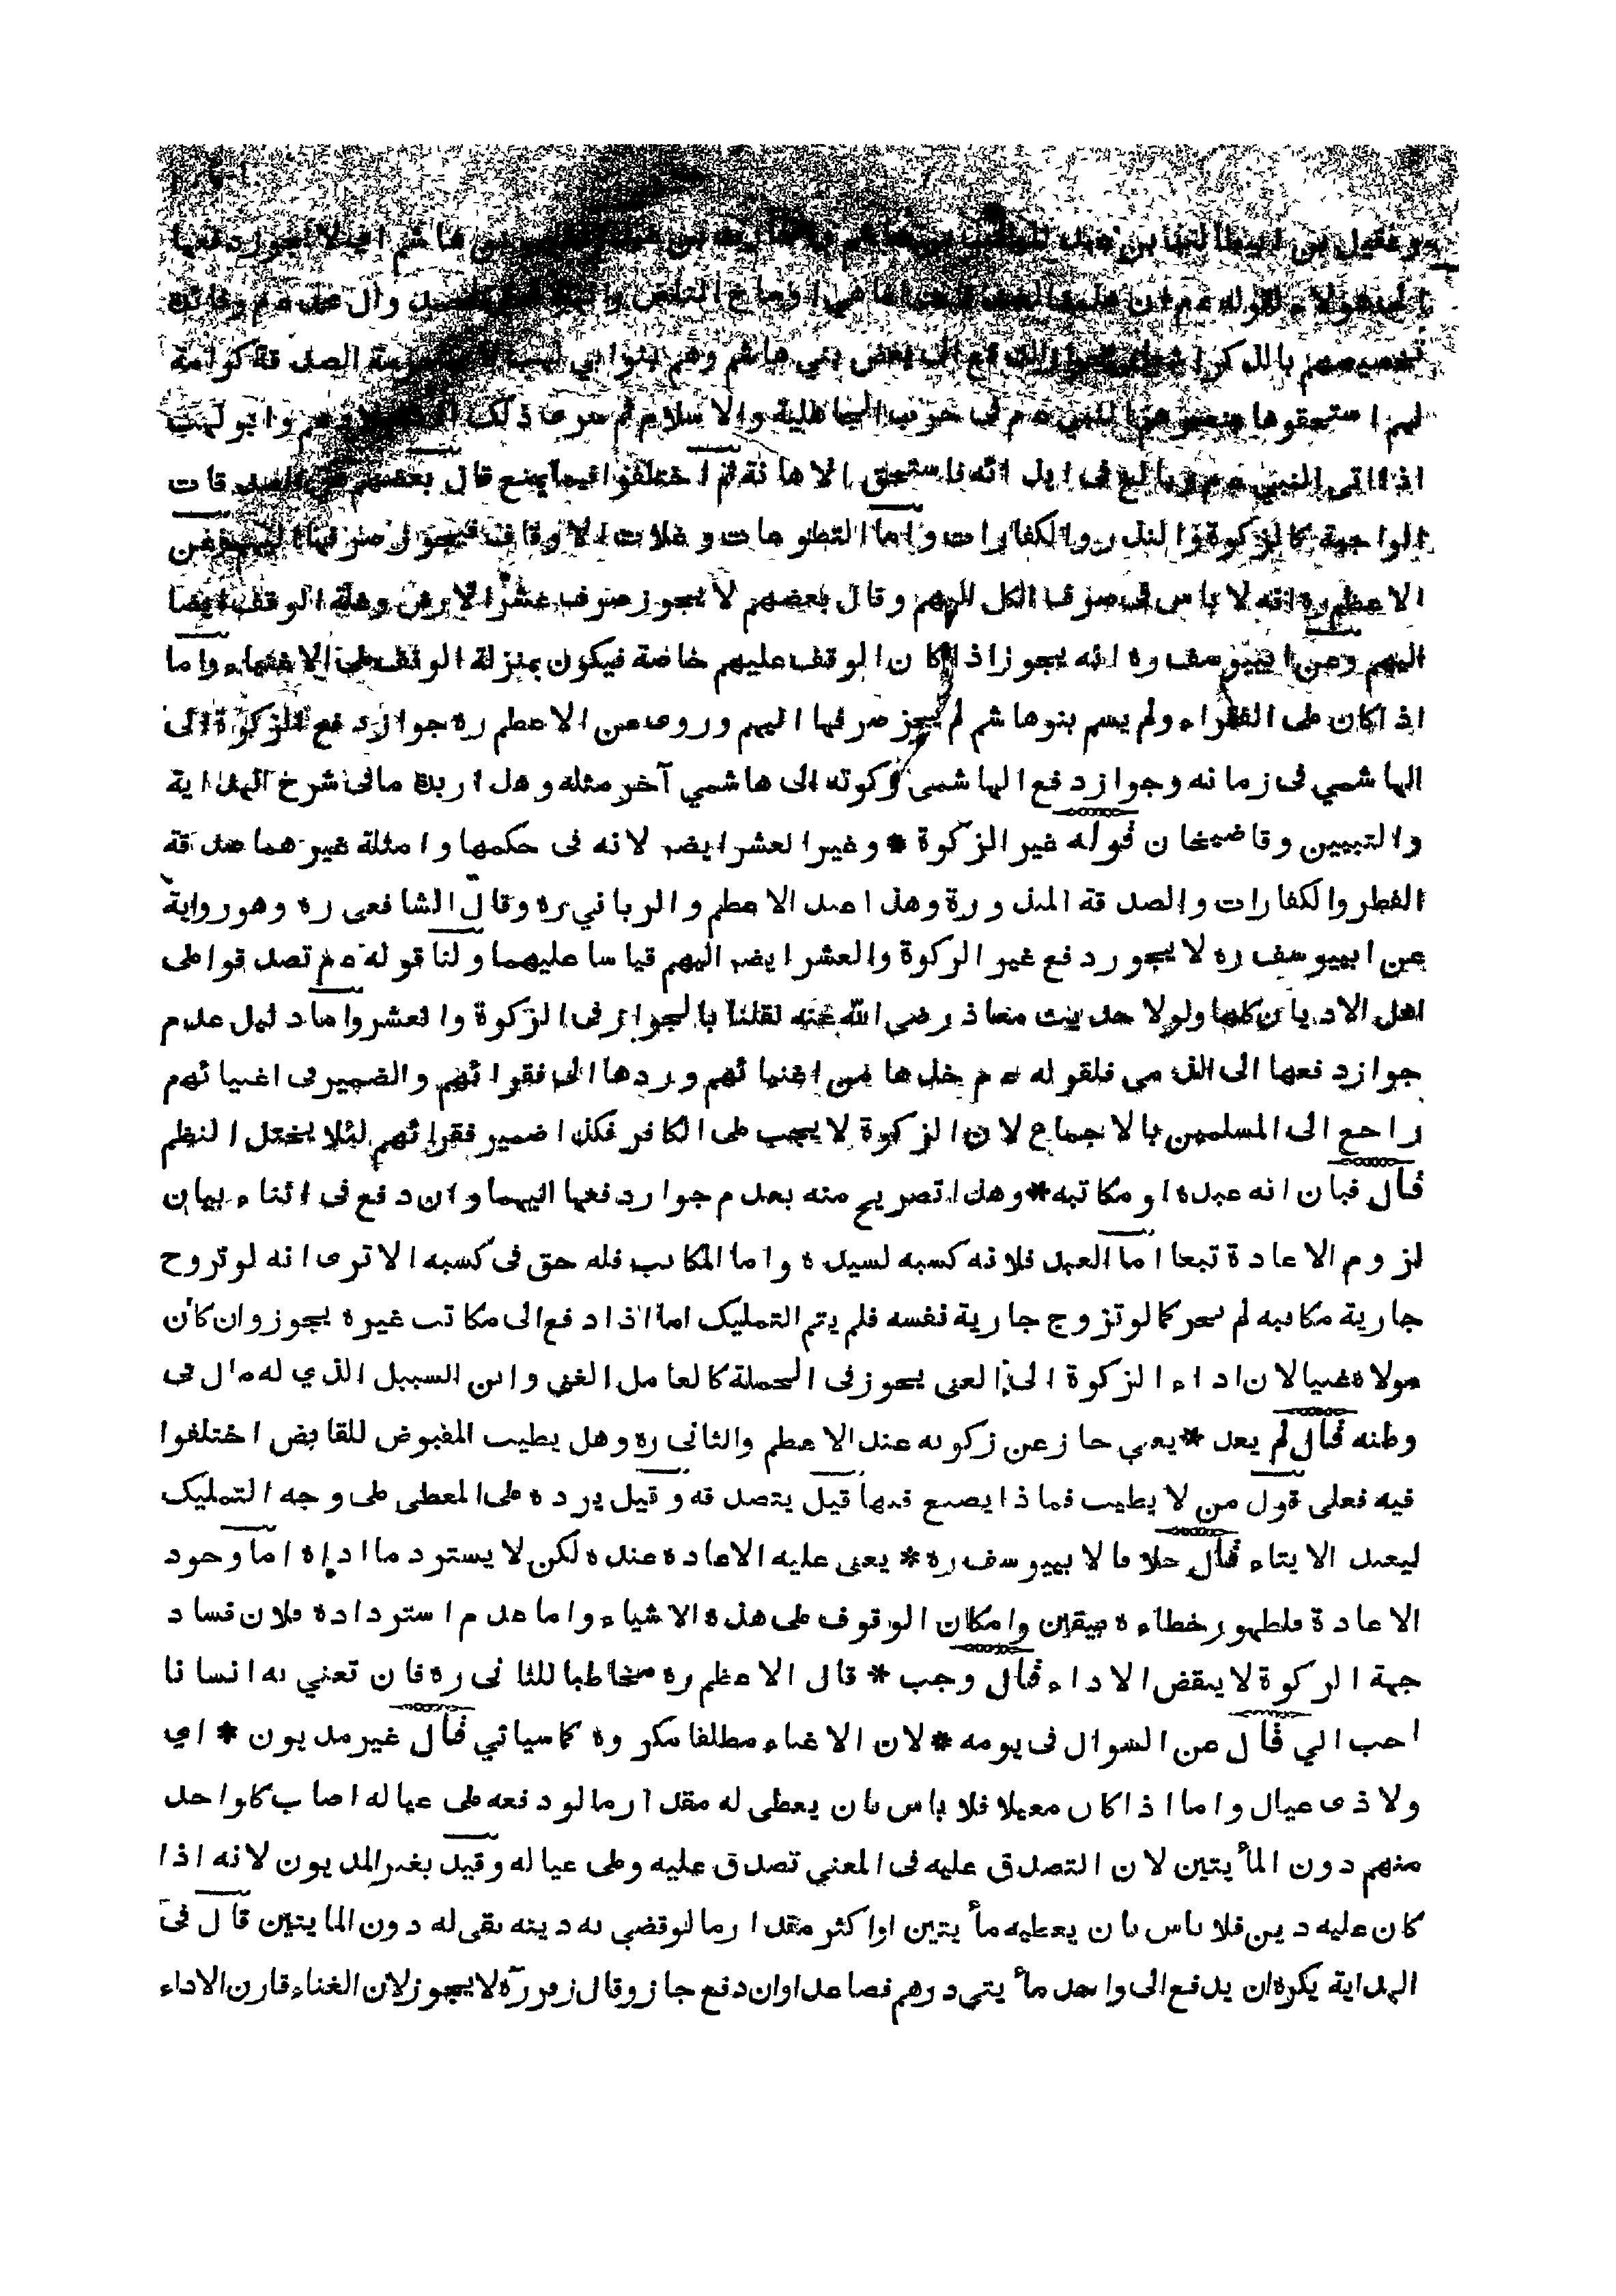 وعقيل بن ابيطالب ابن عبد المطلب هاشم اي لا يجوز دفعها
هولاء لقوله عم ان اوساخ الناس وال محمد عم وفائدة
تخصيصهم بالذكر الى بعض بني هاشم وهم بنوا ابي لهب الصدقة كرامة
لهم استحقوها بنصرهم للنبي عم فى حرب الجاهلية والاسلام ثم سرى ذلك وابو لهب
اذا اتى النبي عم وبالغ فى ايذائه فاستحق الاهانة ثم اختلفوا فيما يمنع قال بعضهم الصدقات
الواجبة كالزكوة والنذر والكفارات واما التطوعات وغلات الاوقاف فيجوز صرفها اليهم وعن
الاعظم ره انه لا باس فى صرف الكل اليهم وقال بعضهم لا يجوز صرف عشر الارض وغلة الوقف ايضا
اليهم وعن ابييوسف ره انه يجوز اذا كان الوقف عليهم خاصة فيكون بمنزلة الوقف على الاغنياء واما
اذا كان على الفقراء ولم يسم بنو هاشم لم يجز صرفها اليهم وروى عن الاعظم ره جواز دفع الزكوة الى
الهاشمي فى زمانه وجواز دفع الهاشمى زكوته الى هاشمي آخر مثله وهذا زبدة مافى شرح الهداية
والتبيين وقاضيخان قوله غير الزكوة * وغير العشر ايضا لانه فى حكمها وامثلة غيرهما صدقة
الفطر والكفارات والصدقة المنذورة وهذا عند الاعظم والرباني ره وقال الشافعى ره وهو رواية
عن ابييوسف ره لا يجوز دفع غير الزكوة والعشر ايضا اليهم قياسا عليهما ولنا قوله عم تصدقوا على
اهل الاديان كلها ولولا حديث معاذ رضى الله عنه لقلنا بالجواز فى الزكوة والعشر واما دليل عدم
جواز دفعها الى الذمي فلقوله عم خذها من اغنيائهم وردها الى فقرائهم والضمير فى اغنيائهم
راجع الى المسلمين بالاجماع لان الزكوة لا يجب على الكافر فكذا ضمير فقرائهم لئلا يختل النظم
قال فبان انه عبده او مكاتبه * وهذا تصريح منه بعدم جواز دفعها اليهما وان دفع فى اثناء بيان
لزوم الاعادة تبعا اما العبد فلانه كسبه لسيده واما المكاتب فله حق فى كسبه الا ترى انه لو تزوج
جارية مكاتبه لم يجز كما لو تزوج جارية نفسه فلم يتم التمليك اما اذا دفع الى مكاتب غيره يجوز وان كان
مولاه غنيا لان اداء الزكوة الى الغنى يجوز فى الجملة كالعامل الغني وابن السبيل الذي له مال فى
وطنه قال لم يعد * يعنى جاز عن زكوته عند الاعظم والثانى ره وهل يطيب المقبوض للقابض اختلفوا
فيه فعلى قول من لا يطيب فماذا يصنع فيها قيل يتصدقه وقيل يرده على المعطى على وجه التمليك
ليعيد الايتاء قال خلافا لابييوسف ره * يعنى عليه الاعاده عنده لكن لا يسترد ما اداه اما وجود
الاعادة فلظهور خطاءه بيقين وامكان الوقوف على هذه الاشياء واما عدم استرداده فلان فساد
جهة الزكوة لا ينقض الاداء قال وجب * قال الاعظم ره مخاطبا للثانى ره فان تغني به انسانا
احب الي قال عن السوال فى يومه * لان الاغناء مطلقا مكروه كما سياتي قال غير مديون * اي
ولا ذى عيال واما اذا كان معيلا فلا باس بان يعطى له مقدار ما لو دفعه على عياله اصاب كل واحد
منهم دون المأيتين لان التصدق عليه فى المعني تصدق عليه وعلى عياله وقيد بغير المديون لانه اذا
كان عليه دين فلا باس بان يعطيه مأيتين او اكثر مقدار ما لو قضى به دينه بقى له دون المايتين قال فى
الهداية يكره ان يدفع الى واحد مأيتي درهم فصاعدا وان دفع جاز وقال زفر ره لا يجوز لان الغناء قارن الاداء